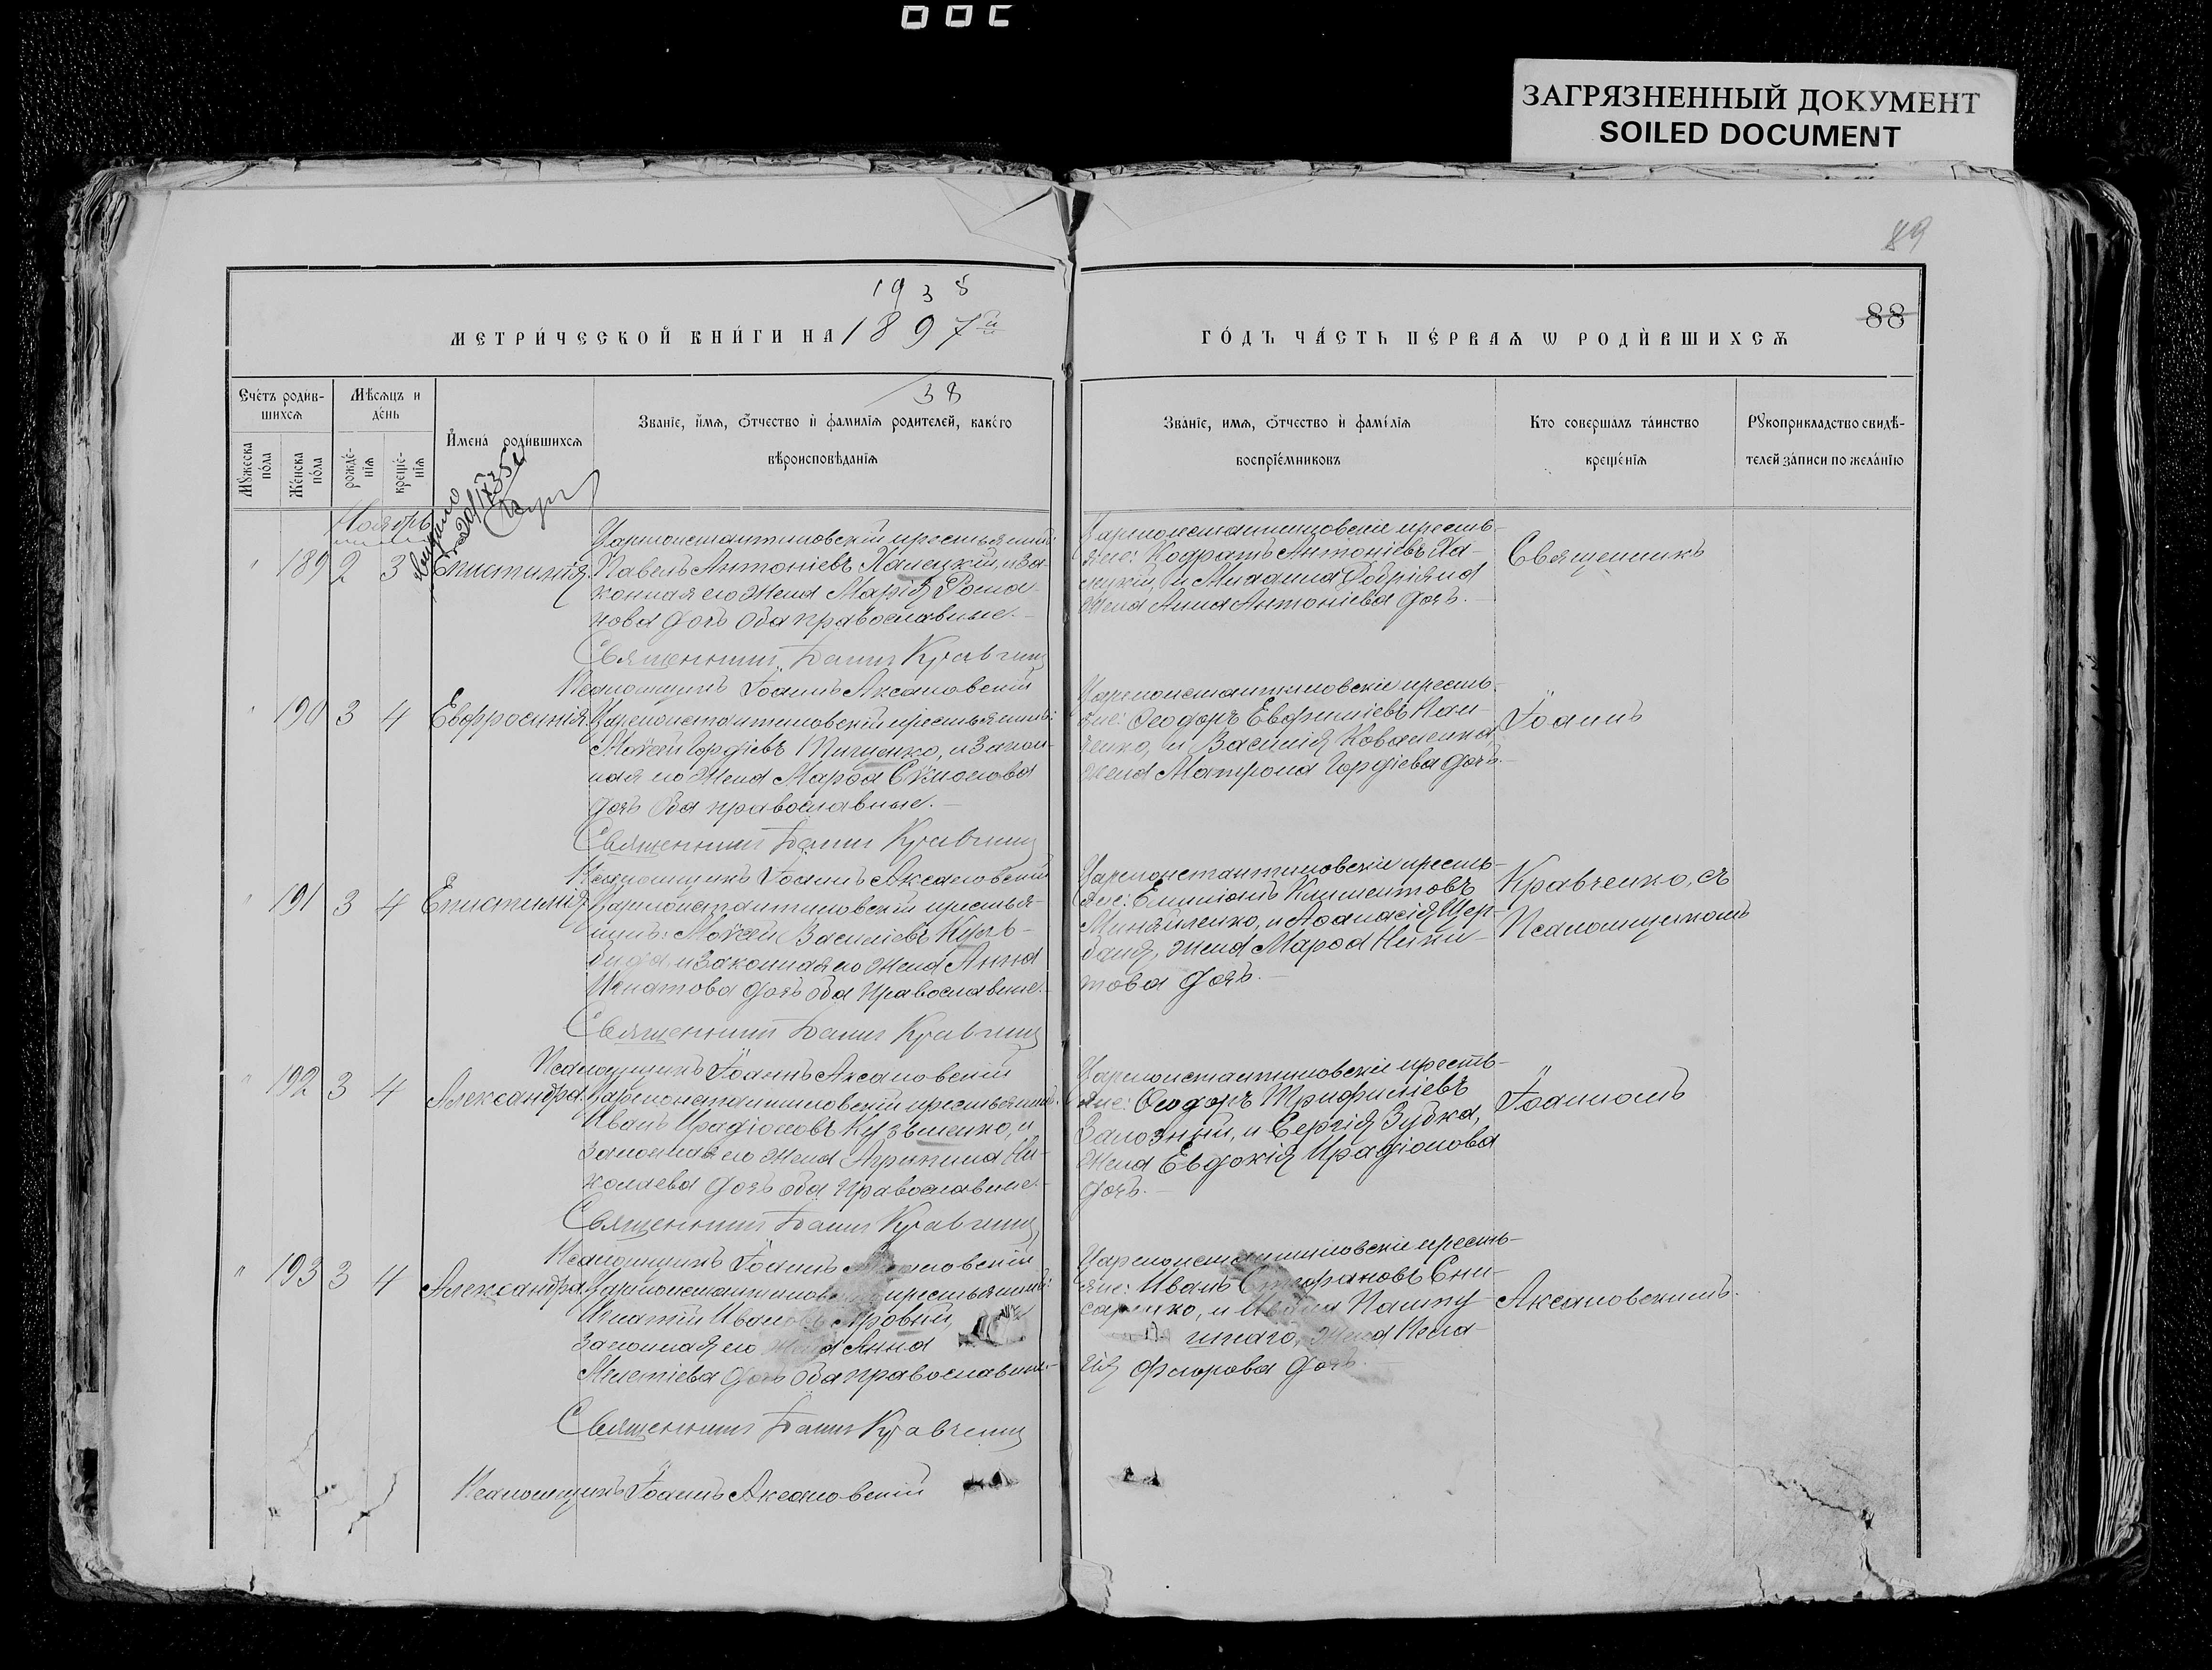 ЗАГРЯЗНЕННЫЙ ДОКУМЕНТ
SOILED DOCUMENT
89
88
1935
МЕТРИ́ЧЕСКОЙ КНИ́ГИ НА 1897й
ГО́ДЪ ЧА́СТЬ ПЕ́РВАѦ Ѡ РОДИ́ВШИХСѦ
38
Сче́тъ роди́в-
шихсѧ
Мѣ́сѧцъ и
де́нь
Мꙋжеска
по́ла
Же́нска
по́ла
рожде́-
нїѧ
креще́-
нїѧ
И҆мена̀ роди́вшихсѧ
Зва́нїе, и҆́мѧ, ѻ҆́тчество и҆ фами́лїѧ роди́телей, како́гѡ
вѣроисповѣ́данїѧ
Зва́нїе, имѧ, ѻ҆́тчество и҆ фамі́лїѧ
воспрїе́мниковъ
Кто соверша́лъ та́инство
креще́нїѧ
Рꙋкоприкладство свидѣ́-
телей за́писи по жела́нїю
Ноябрь
" 189 2 3 Епистимія
Цареконстантиновскій крестьянинъ:
Павелъ Антоніевъ Халецкій, и за-
конная его жена Марія Рома-
нова дочь оба православные.-
Священникъ Іоаннъ Кравченко
Псаломщикъ Іоаннъ Аксановскій
Цареконстантиновскіе кресть-
яне: Кодратъ Антоніевъ Ха-
лецкій, и Михаила Добріяна
жена Анна Антоніева дочь.-
Священникъ
" 190 3 4 Евфросинія
Цареконстантиновскій крестьянинъ:
Мочеи Гордіевъ Тищенко, и закон-
ная его жена Марѳа Сѵмонова
дочь оба православные.-
Священникъ Іоаннъ Кравченко
Псаломщикъ Іоаннъ Аксановскій
Цареконстантиновскіе кресть-
яне: Ѳеодоръ Евфиміевъ Пан-
ченко, и Василія Коваленка,
жена Матрона Гордіева дочь.-
Іоаннъ
" 191 3 4 Епистимія
Цареконстантиновскій крестья-
нинъ: Василіевъ
и законная его жена Анна
Игнатова дочь оба православные.-
Священникъ Іоаннъ Кравченко
Псаломщикъ Іоаннъ Аксановскій
Цареконстантиновскіе кресть-
яне: Емиліанъ Климентовъ
Миняйленко, и Аѳанасія Щер-
баня, жена Марѳа Ники-
това дочь.-
Кравченко, съ
Псаломщикомъ
" 192 3 4 Александра
Цареконстантиновскій крестьянинъ:
Иванъ Иродіоновъ Кузьменко, и
законная его жена Агрипина Ни-
колаева дочь оба православные.-
Священникъ Іоаннъ Кравченко
Псаломщикъ Іоаннъ Аксановскій
Цареконстантиновскіе кресть-
яне: Ѳеодоръ Трифиліевъ
Залозный, и Сергія Зубка,
жена Евдокія Иродіонова
дочь.-
Іоанномъ
" 193 3 4 Александра
Цареконстантиновскій крестьянинъ:
Игнатій Ивановъ Яровый,
законная его жена Анна
Мелетіева дочь оба православные.-
Священникъ Іоаннъ Кравченко
Псаломщикъ Іоаннъ Аксановскій
Цареконстантиновскіе кресть-
яне: Иванъ Стефановъ Сни-
саренко, и Ивана
жена Пела-
гія Флорова дочь.-
Аксановскимъ.